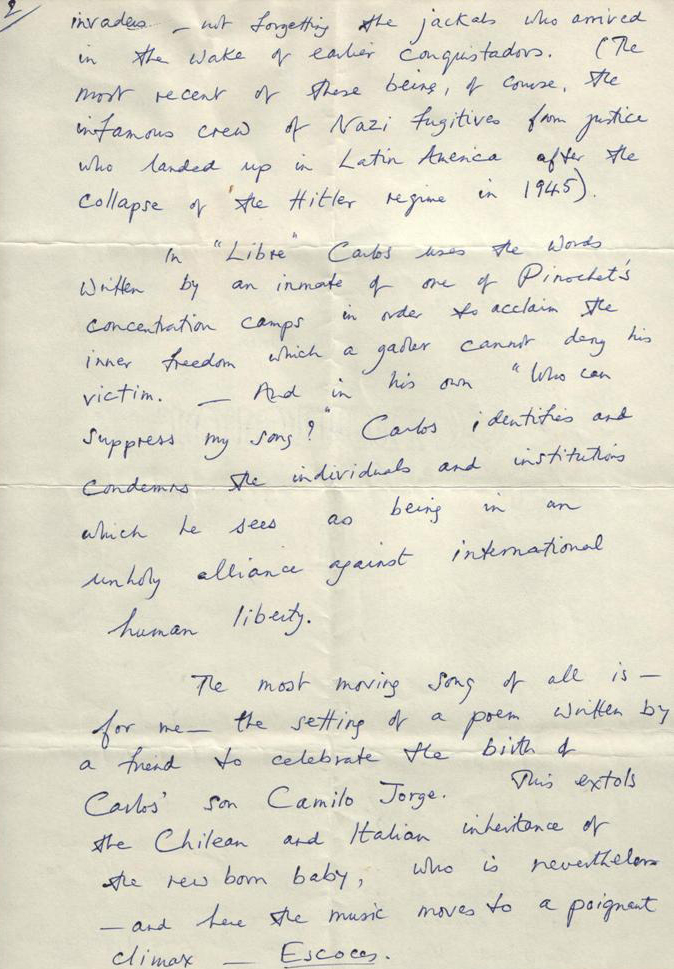 2/
invaders – not forgetting the jackals who arrived
in the wake of earlier conquistadors. (The
most recent of these being, of course, the
infamous crew of Nazi fugitives from justice
who landed up in Latin America after the
collapse of the Hitler regime in 1945).
In "Libre" Carlos uses the words
written by an inmate of one of Pinochet's
concentration camps in order to acclaim the
inner freedom which a gaoler cannot deny his
victim. — And in his own "Who can
suppress my song?" Carlos identifies and
condemns the individuals and institutions
which he sees as being in an
unholy alliance against international
human liberty.
The most moving song of all is —
for me — the setting of a poem written by
a friend to celebrate the birth of
Carlos' son Camilo Jorge. This extols
the Chilean and Italian inheritance of
the new born baby, who is nevertheless
— and here the music moves to a poignant
climax — Escoces.